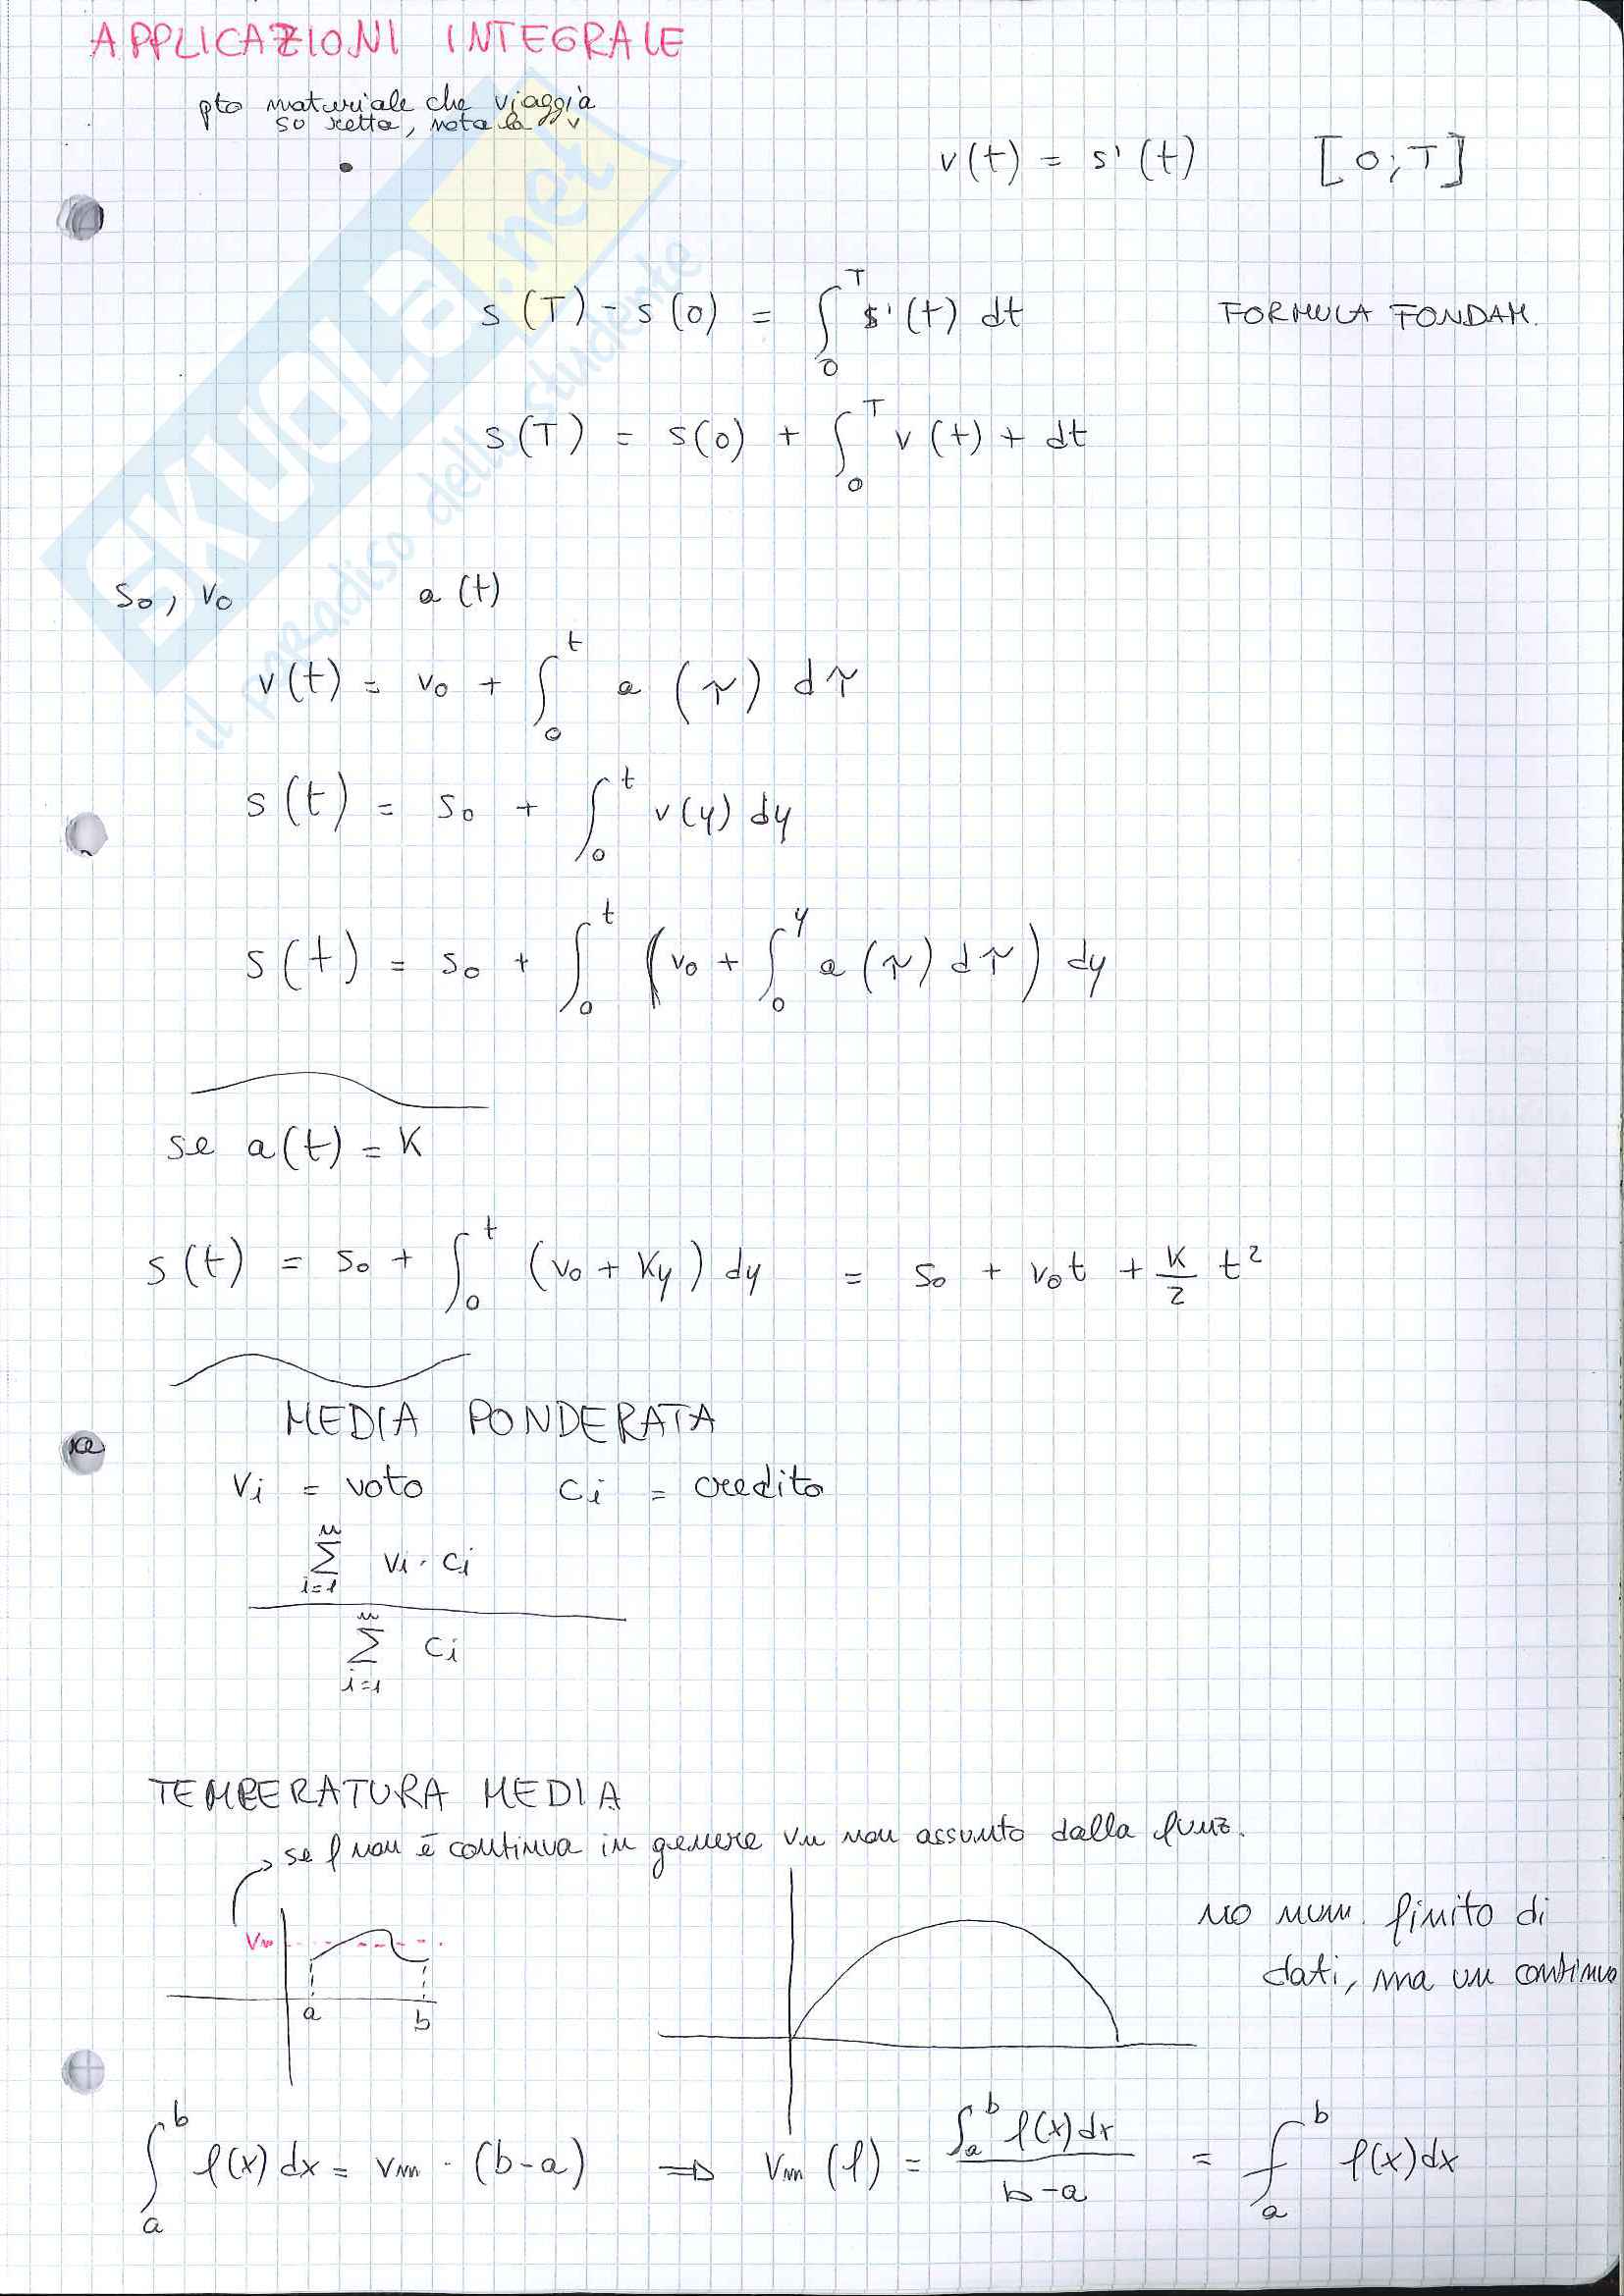 APPLICAZIONI INTEGRALE
pto materiale che viaggia
su retta, nota la v
v(t) = s'(t) [0;T]
s(T) - s(0) = ∫₀ᵀ s'(t) dt FORMULA FONDAM.
s(T) = s(0) + ∫₀ᵀ v(t) + dt
s₀, v₀ a(t)
v(t) = v₀ + ∫₀ᵗ a(τ) dτ
s(t) = s₀ + ∫₀ᵗ v(y) dy
s(t) = s₀ + ∫₀ᵗ (v₀ + ∫₀ʸ a(τ) dτ) dy
se a(t) = K
s(t) = s₀ + ∫₀ᵗ (v₀ + Ky) dy = s₀ + v₀t + K/2 t²
MEDIA PONDERATA
vi = voto ci = credito
n
Σ vi · ci
i=1
n
Σ ci
i=1
TEMPERATURA MEDIA
se f non è continua in genere vm non assunto dalla funz.
no num. finito di
dati, ma un continuo
Vm
a b
∫ₐᵇ f(x) dx = Vm · (b-a) ⇒ Vm (f) = ∫ₐᵇ f(x) dx / b-a = ⨍ₐᵇ f(x) dx
SKUOLA.net
il paradiso dello studente